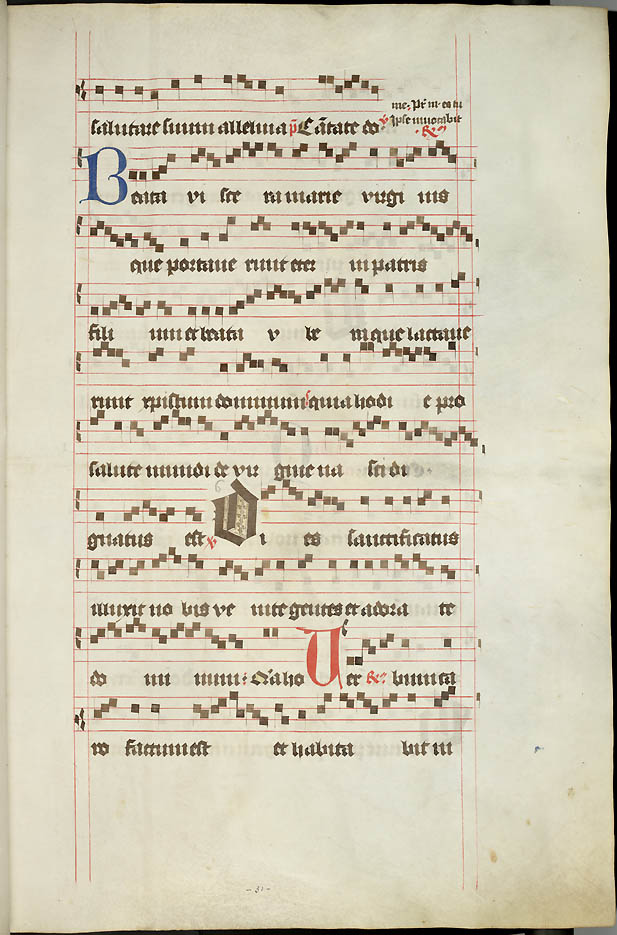 me. Ps. m. es tu
salutare suum alleluia ps Cantate do ℣ Ipse invocabit
℟
Beata vi sce ra marie virgi nis
que portave runt eter ni patris
fili um et beata v be ra que lactave
runt xpistum dominum quia hodi e pro
salute mundi de vir gine na sci di
gnatus est ℣ Di es sanctificatus
illuxit no bis ve nite gentes et adora te
do mi num. Quia ho Ver ℟ bum ca
ro factum est et habita bit in
- 51 -